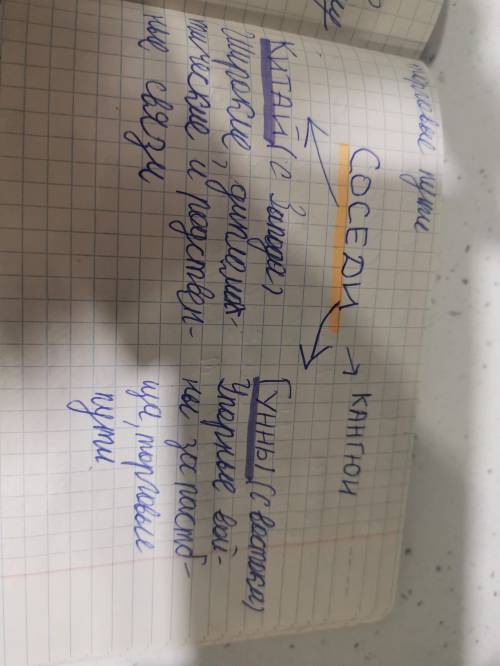 торговые пути
СОСЕДИ → КАНГЮИ
КИТАЙ (с Запада)
Широкие дипломат-
тические и родствен-
ные связи
ГУННЫ (с востока)
Упорные вой-
ны за пастб-
ища, торговые
пути